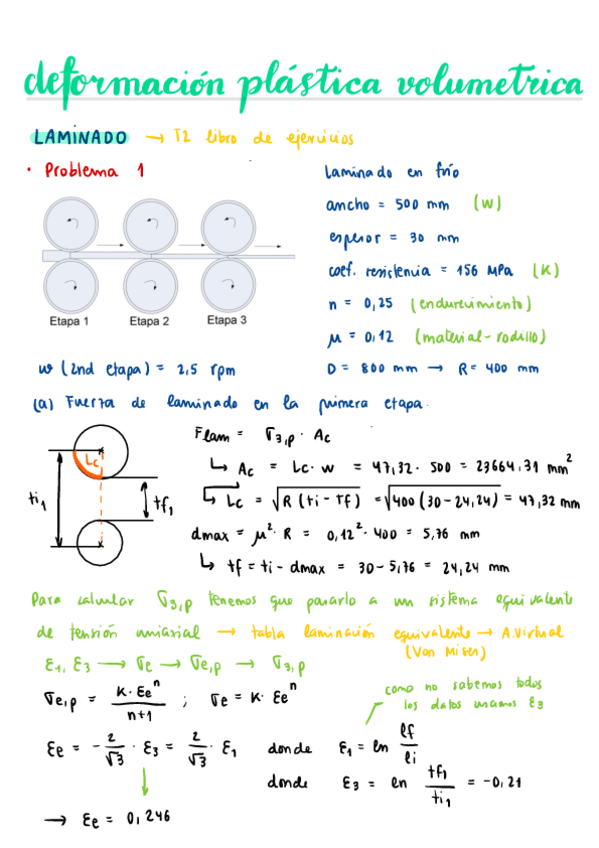 deformación plástica volumetrica
LAMINADO → T2 libro de ejercicios
• Problema 1
Laminado en frío
ancho = 500 mm (W)
espesor = 30 mm
coef. resistencia = 156 MPa (K)
n = 0,25 (endurecimiento)
μ = 0,12 (material-rodillo)
D = 800 mm → R = 400 mm
Etapa 1 Etapa 2 Etapa 3
w (2nd etapa) = 2,5 rpm
(a) Fuerza de laminado en la primera etapa.
Flam = σ3,p · Ac
↳ Ac = Lc · w = 47,32 · 500 = 23664,31 mm²
↳ Lc = √R (ti - tf) = √400 (30 - 24,24) = 47,32 mm
dmax = μ² · R = 0,12² · 400 = 5,76 mm
↳ tf = ti - dmax = 30 - 5,76 = 24,24 mm
Lc
ti1
tf1
Para calcular σ3,p tenemos que pasarlo a un sistema equivalente
de tensión uniaxial → tabla laminación equivalente → A.Virtual
(Von Mises)
ε1, ε3 → σe → σe,p → σ3,p
σe,p = K · εe^n / n+1 ; σe = K · εe^n
como no sabemos todos
los datos usamos ε3
εe = - 2/√3 · ε3 = 2/√3 · ε1 donde ε1 = ln lf/li
donde ε3 = ln tf1/ti1 = -0,21
→ εe = 0,246